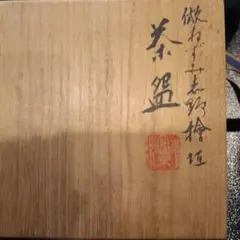 倣ねずみ志野檜垣
茶盌